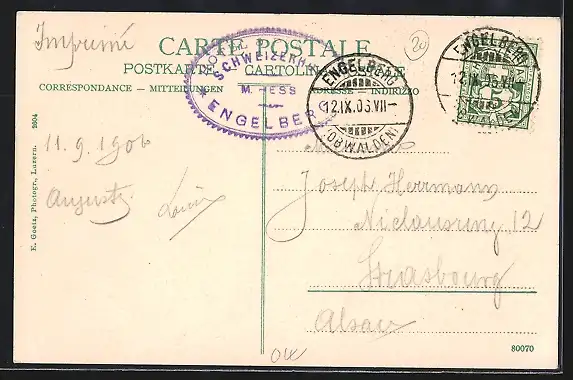 Imprimé
CARTE POSTALE
20
POSTKARTE CARTOLINA
CORRESPONDANCE – MITTEILUNGEN
ADRESSE – INDIRIZZO
HOTEL SCHWEIZERHOF
M. HESS
ENGELBERG
ENGELBERG
12.IX.06.VII–
(OBWALDEN)
ENGELBERG
12.IX.06.VII
11.9.1906
Auguste
Louise
Joseph Hermann
Niclausring 12
Strasbourg
Alsace
E. Goetz, Photogr., Luzern. 2604
OW
80070